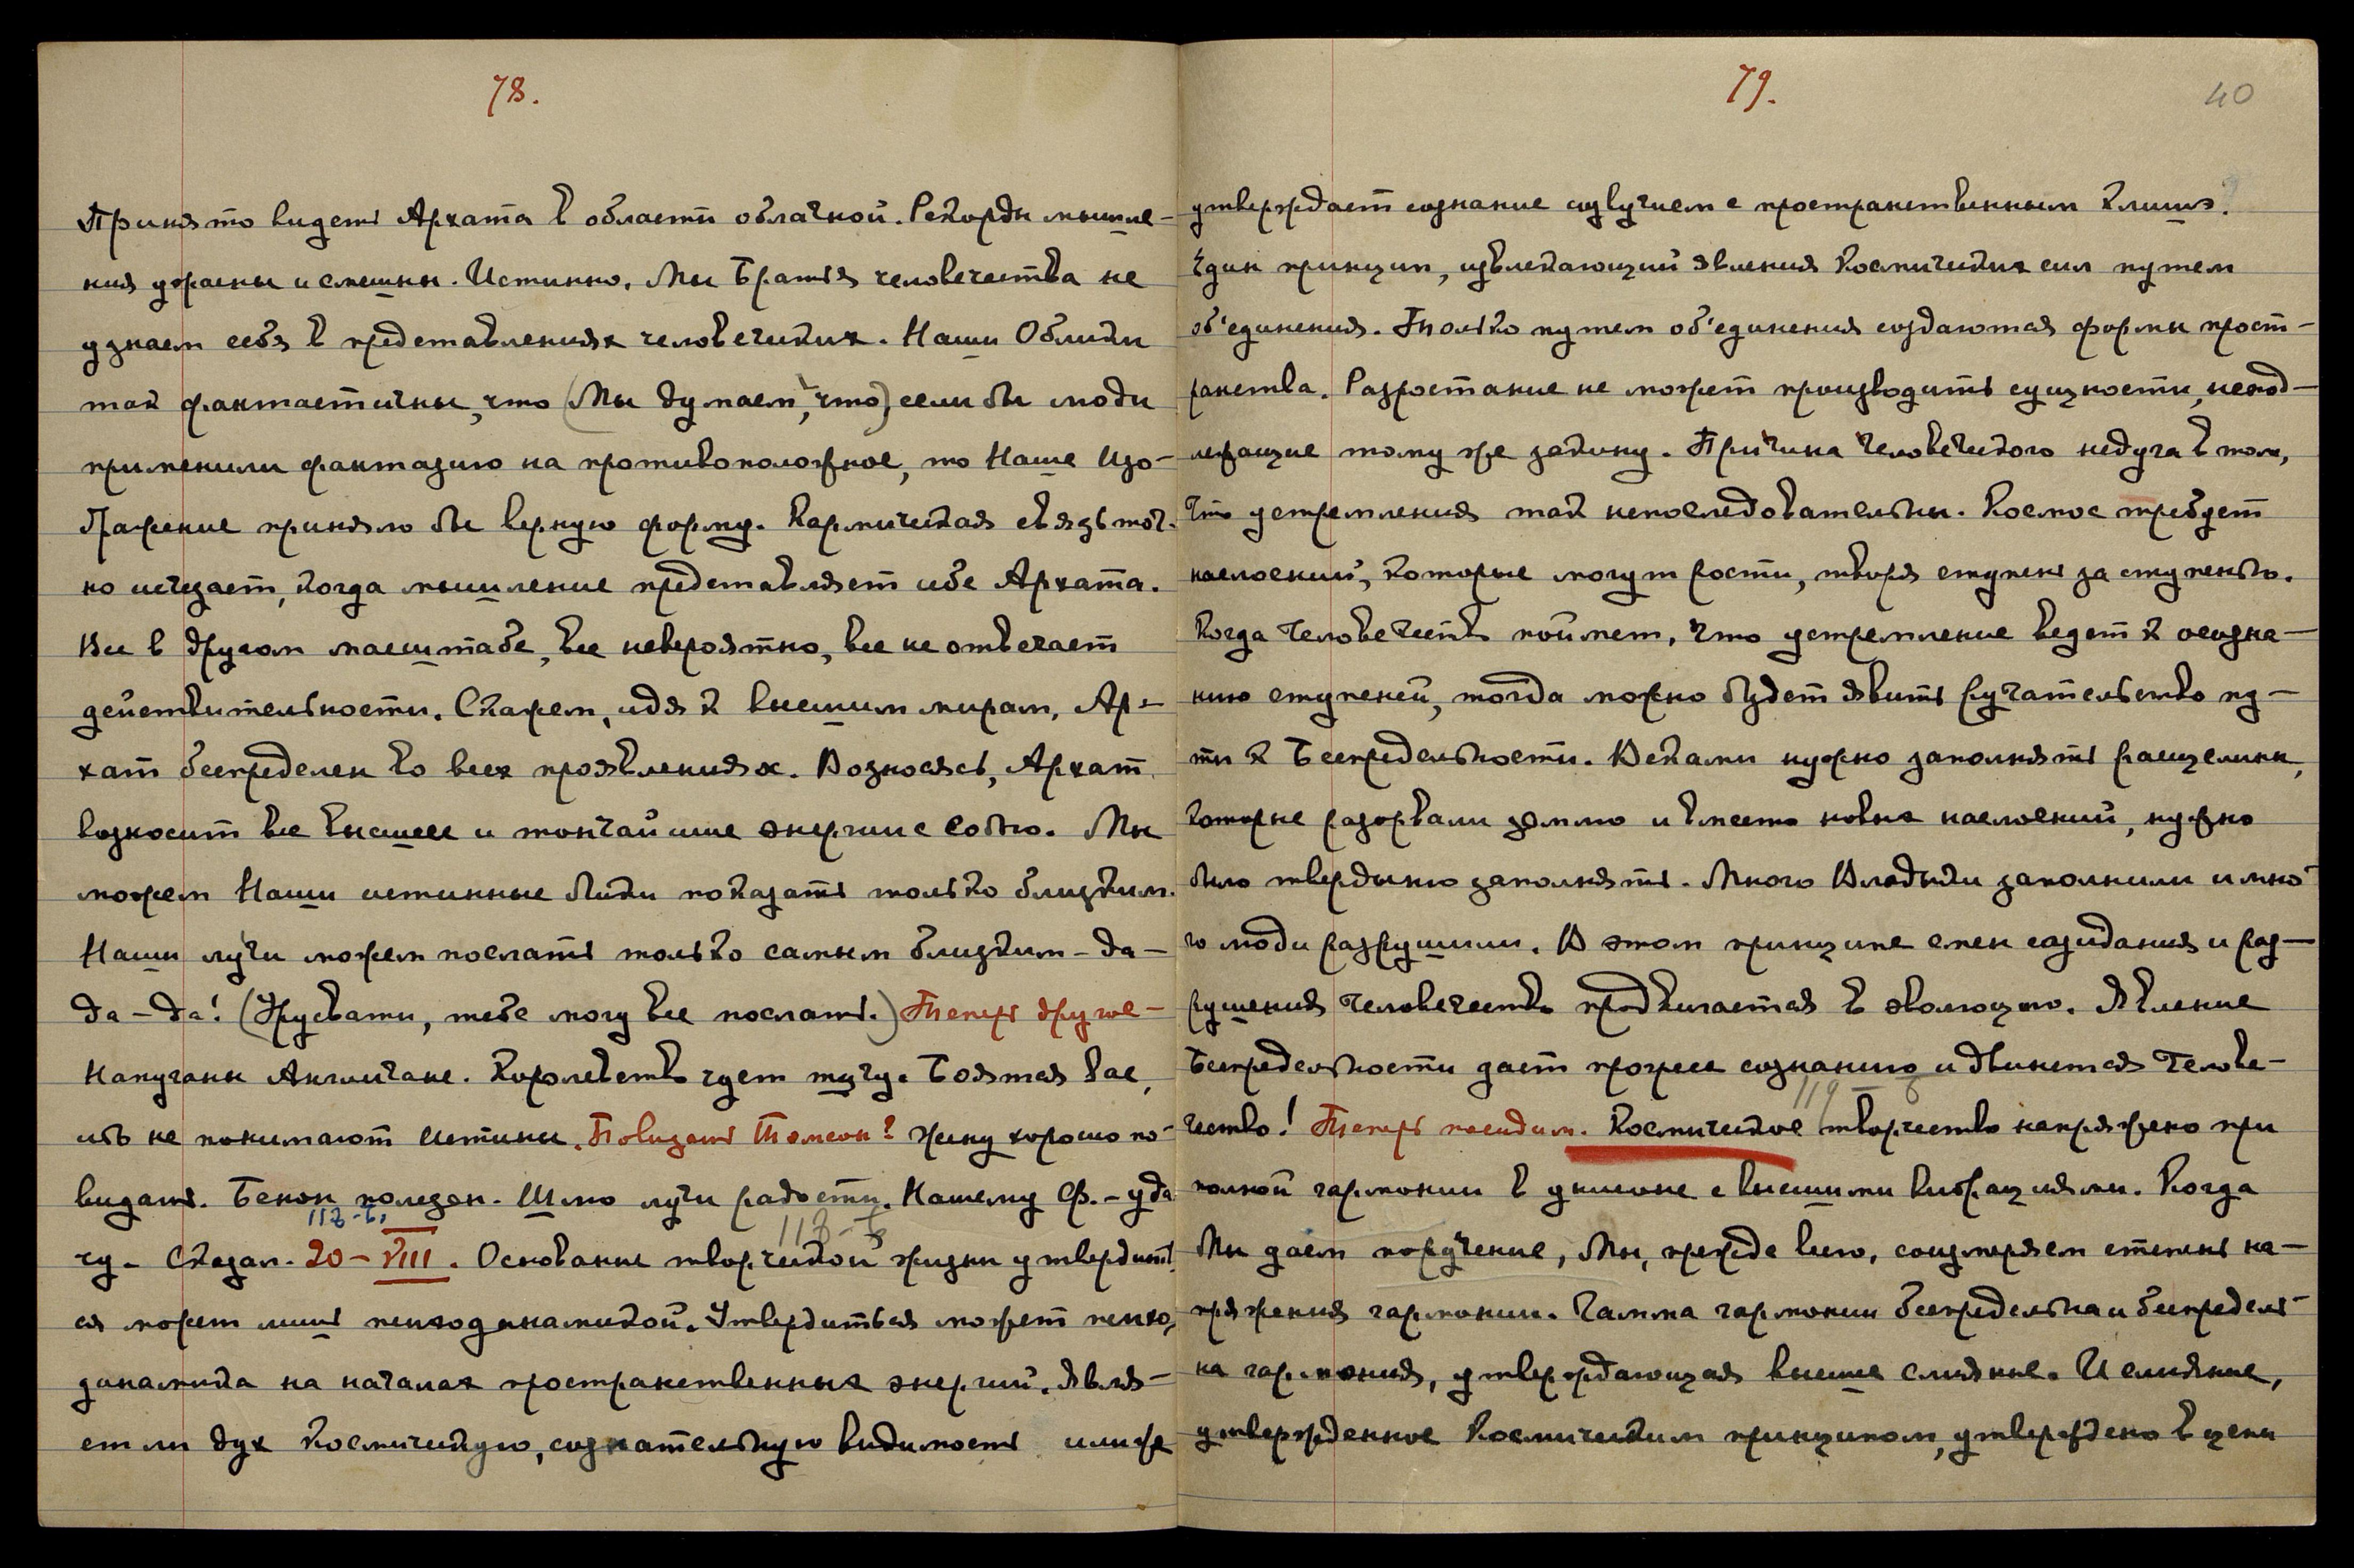 78.
Принято видеть Архата в области облачной. Рекорды мышле-
ния ужасны и смешны. Истинно, Мы Братья человечества не
узнаем себя в представлениях человеческих. Наши Облики
так фантастичны, что (Мы думаем, что) если бы люди
применили фантазию на противоположное, то Наше Изо-
бражение приняло бы верную форму. Кармическая связь тот-
но исчезает, когда мышление представляет себе Архата.
Все в другом масштабе, все невероятно, все не отвечает
действительности. Скажем, идя к высшим мирам, Ар-
хат беспределен во всех проявлениях. Возносясь, Архат
возносит все высшее и тончайшие энергии с собою. Мы
можем Наши истинные Лики показать только близким.
Наши лучи можем послать только самым близким – да –
да – да! (Урусвати, тебе могу все послать.) Теперь другое –
Напуганы Англичане. Королевство чует тучу. Боятся вас,
ибо не понимают истины. Повидать Томсон? Жену хорошо по-
видать. Бенон полезен. Шлю лучи радости. Нашему Ф. – уда
118-б,
118-б
чу. Сказал. 20 – VIII. Основание творческой жизни утвердить
ся может лишь психодинамикой. Утвердиться может психо,
динамика на началах пространственных энергий. Явля-
ет ли дух космическую, сознательную видимость или же
79.
40
утверждает сознание созвучием с пространственным клише?
Един принцип, извлекающий явления Космических сил путем
об'единения. Только путем об'единения создаются формы прост-
ранства. Разростание не может производить сущности, непод-
лежащие тому же закону. Причина человеческого недуга в том,
что устремления так непоследовательны. Космос требует
наслоений, которые могут рости, творя ступень за ступенью.
Когда человечество поймет, что устремление ведет к осозна-
нию ступеней, тогда можно будет явить ручательство пу-
ти к Беспредельности. Веками нужно заполнять расщелины,
которые разорвали землю и вместо новых наслоений, нужно
было твердыню заполнять. Много Владыки заполнили и мно-
го люди разрушили. В этом принципе смен созидания и раз-
рушения человечество продвигается в эволюцию. Явление
Беспредельности дает прогресс сознанию и двинется челове-
119 – б
чество! Теперь посидим. Космическое творчество напряжено при
полной гармонии в унисоне с высшими вибрациями. Когда
Мы даем поручение, Мы, прежде всего, соизмеряем степень на-
пряжения гармонии. Гамма гармонии беспредельна и беспредель-
на гармония, утверждающая высшее слияние. И слияние,
утвержденное Космическим принципом, утверждено в цепи